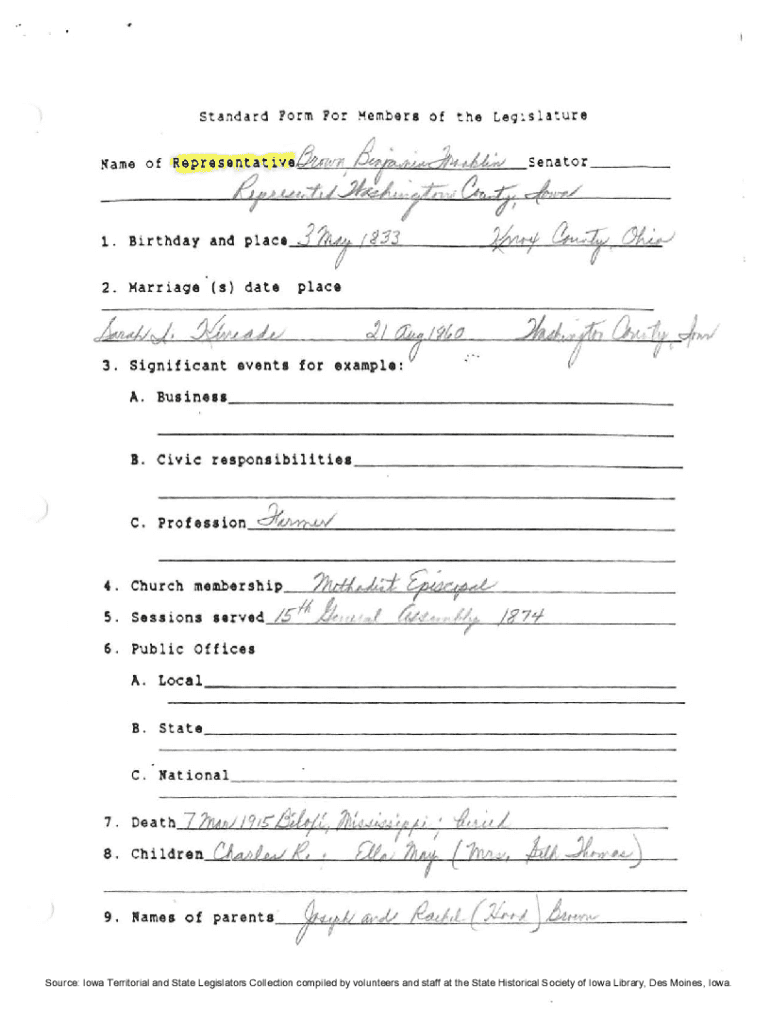 Standard Form For Members of the Legislature
Name of Representative Brown, Benjamin Franklin Senator
Represented Washington County, Iowa
1. Birthday and place 3 May 1833 Knox County, Ohio
2. Marriage (s) date place
Sarah J. Kincade 21 Aug 1960 Washington County, Iowa
3. Significant events for example:
A. Business
B. Civic responsibilities
C. Profession Farmer
4. Church membership Methodist Episcopal
5. Sessions served 15th General Assembly 1874
6. Public Offices
A. Local
B. State
C. National
7. Death 7 Mar 1915 Biloxi, Mississippi; buried
8. Children Charles R.; Ella May (Mrs. Seth Thomas)
9. Names of parents Joseph and Rachel (Hood) Brown
Source: Iowa Territorial and State Legislators Collection compiled by volunteers and staff at the State Historical Society of Iowa Library, Des Moines, Iowa.